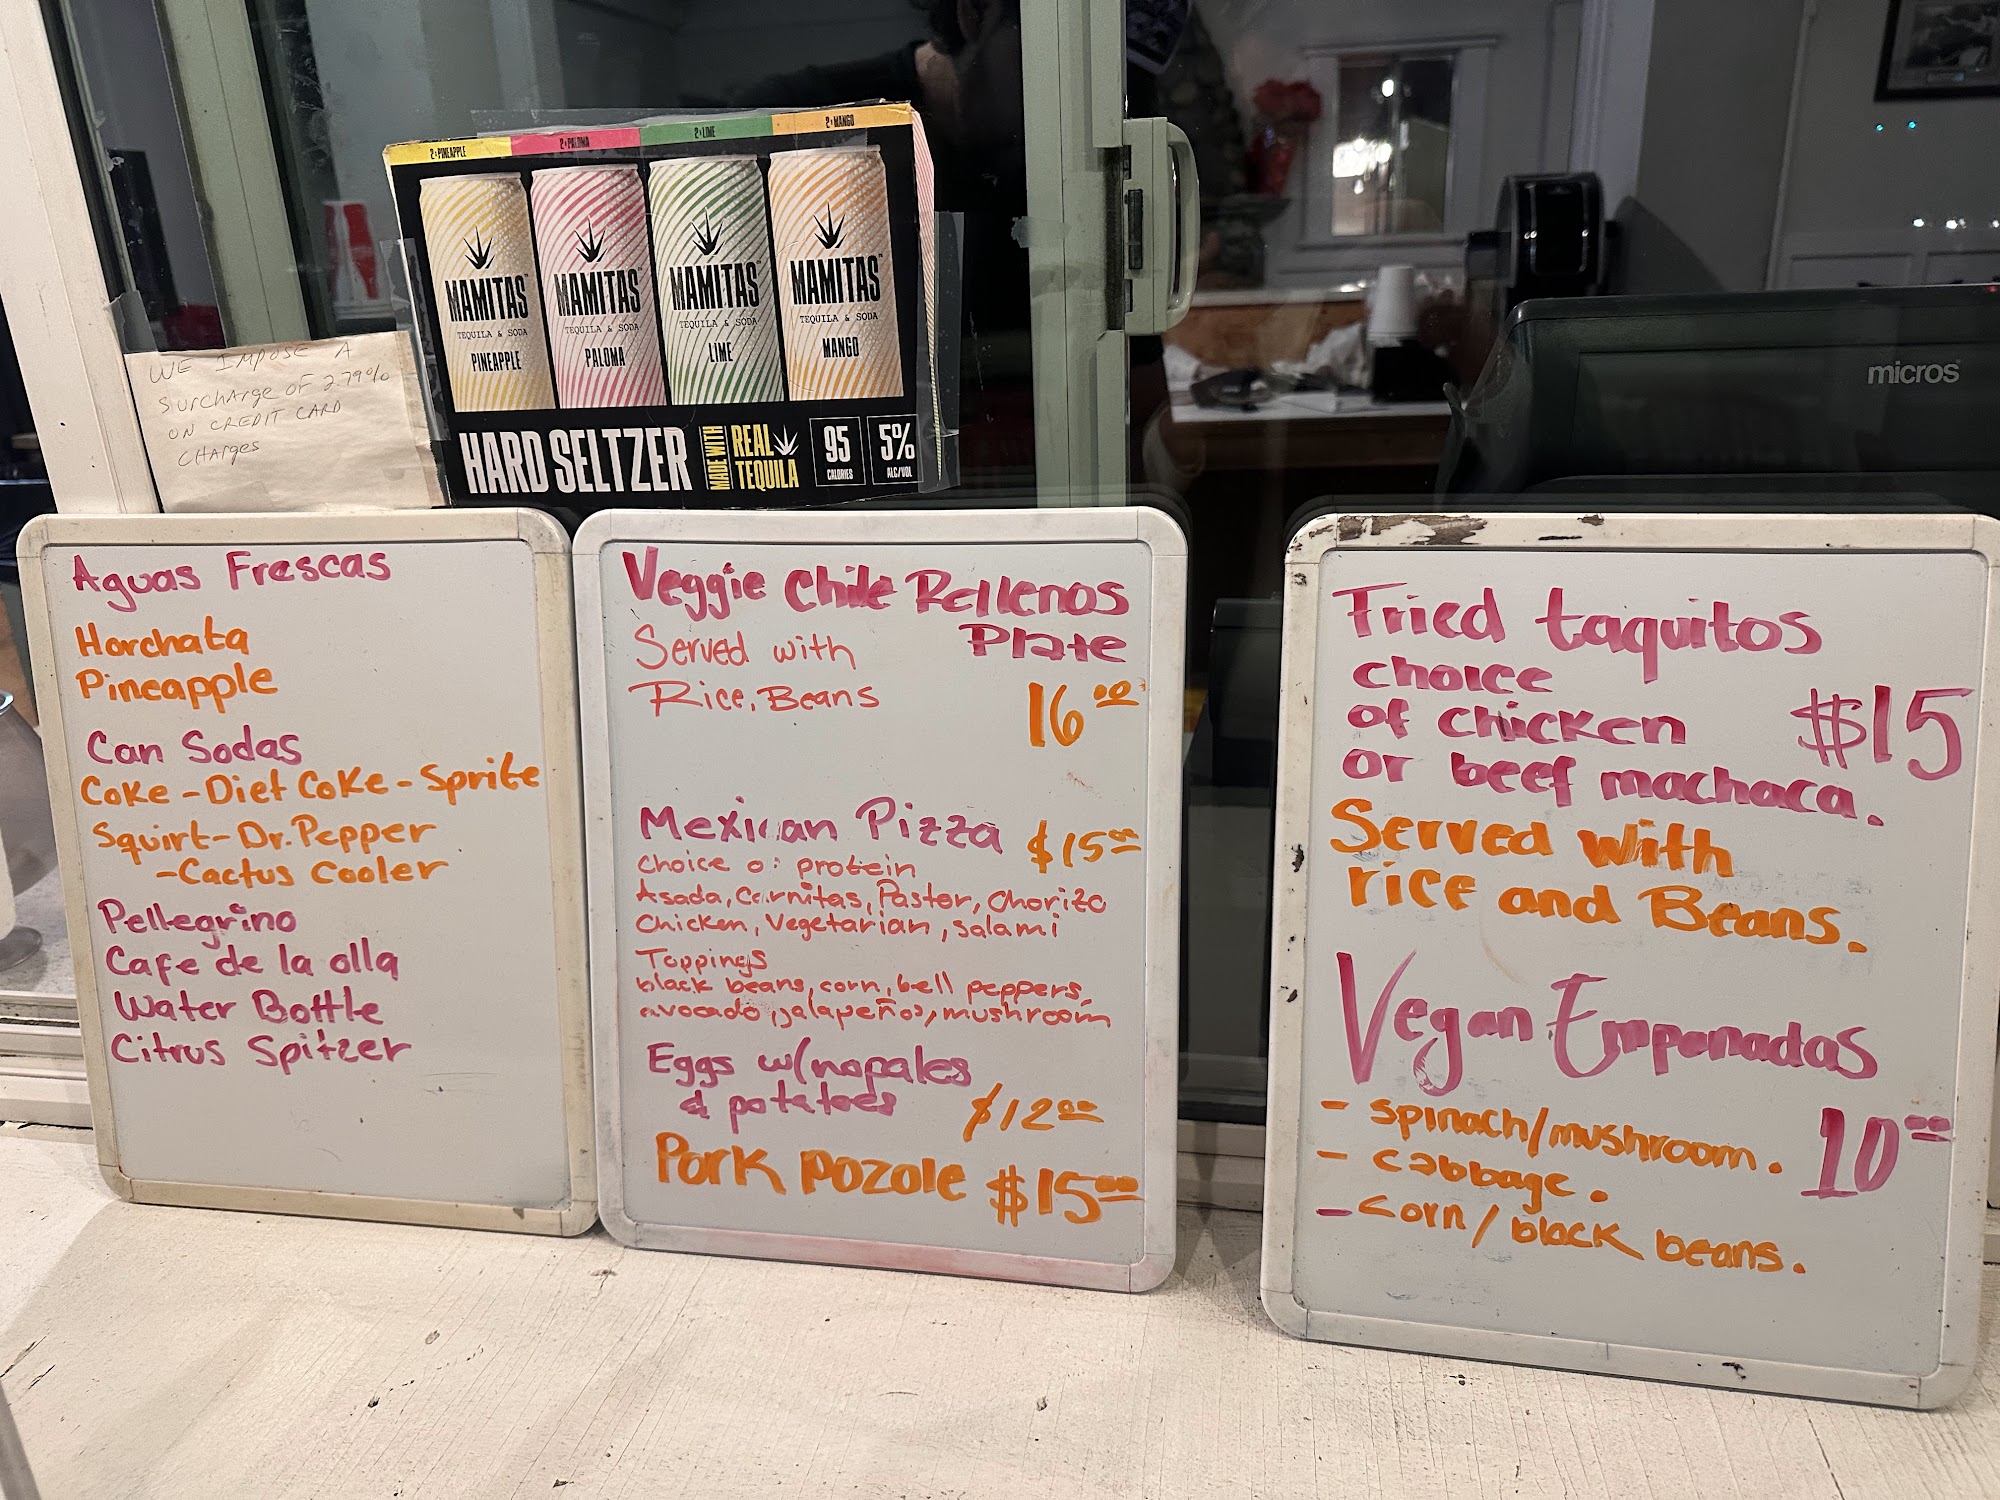 2x PINEAPPLE
2x PALOMA
2x LIME
2x MANGO
MAMITAS
TEQUILA & SODA
PINEAPPLE
MAMITAS
TEQUILA & SODA
PALOMA
MAMITAS
TEQUILA & SODA
LIME
MAMITAS
TEQUILA & SODA
MANGO
HARD SELTZER
MADE WITH
REAL
TEQUILA
95
CALORIES
5%
ALC/VOL
WE IMPOSE A
SURCHARGE OF 2.79%
ON CREDIT CARD
CHARGES
micros
Aguas Frescas
Horchata
Pineapple
Can Sodas
Coke - Diet Coke - Sprite
Squirt - Dr. Pepper
- Cactus Cooler
Pellegrino
Cafe de la olla
Water Bottle
Citrus Spitzer
Veggie Chile Rellenos
Plate
Served with
Rice, Beans
16.00
Mexican Pizza $15.00
Choice o: protein
Asada, Carnitas, Pastor, Chorizo
Chicken, Vegetarian, Salami
Toppings
black beans, corn, bell peppers,
avocado, jalapeños, mushroom
Eggs w/nopales
& potatoes $12.00
Pork pozole $15.00
Fried taquitos
choice
of chicken $15
or beef machaca.
Served with
rice and Beans.
Vegan Empanadas
- spinach/mushroom. 10.00
- cabbage.
- corn/black beans.